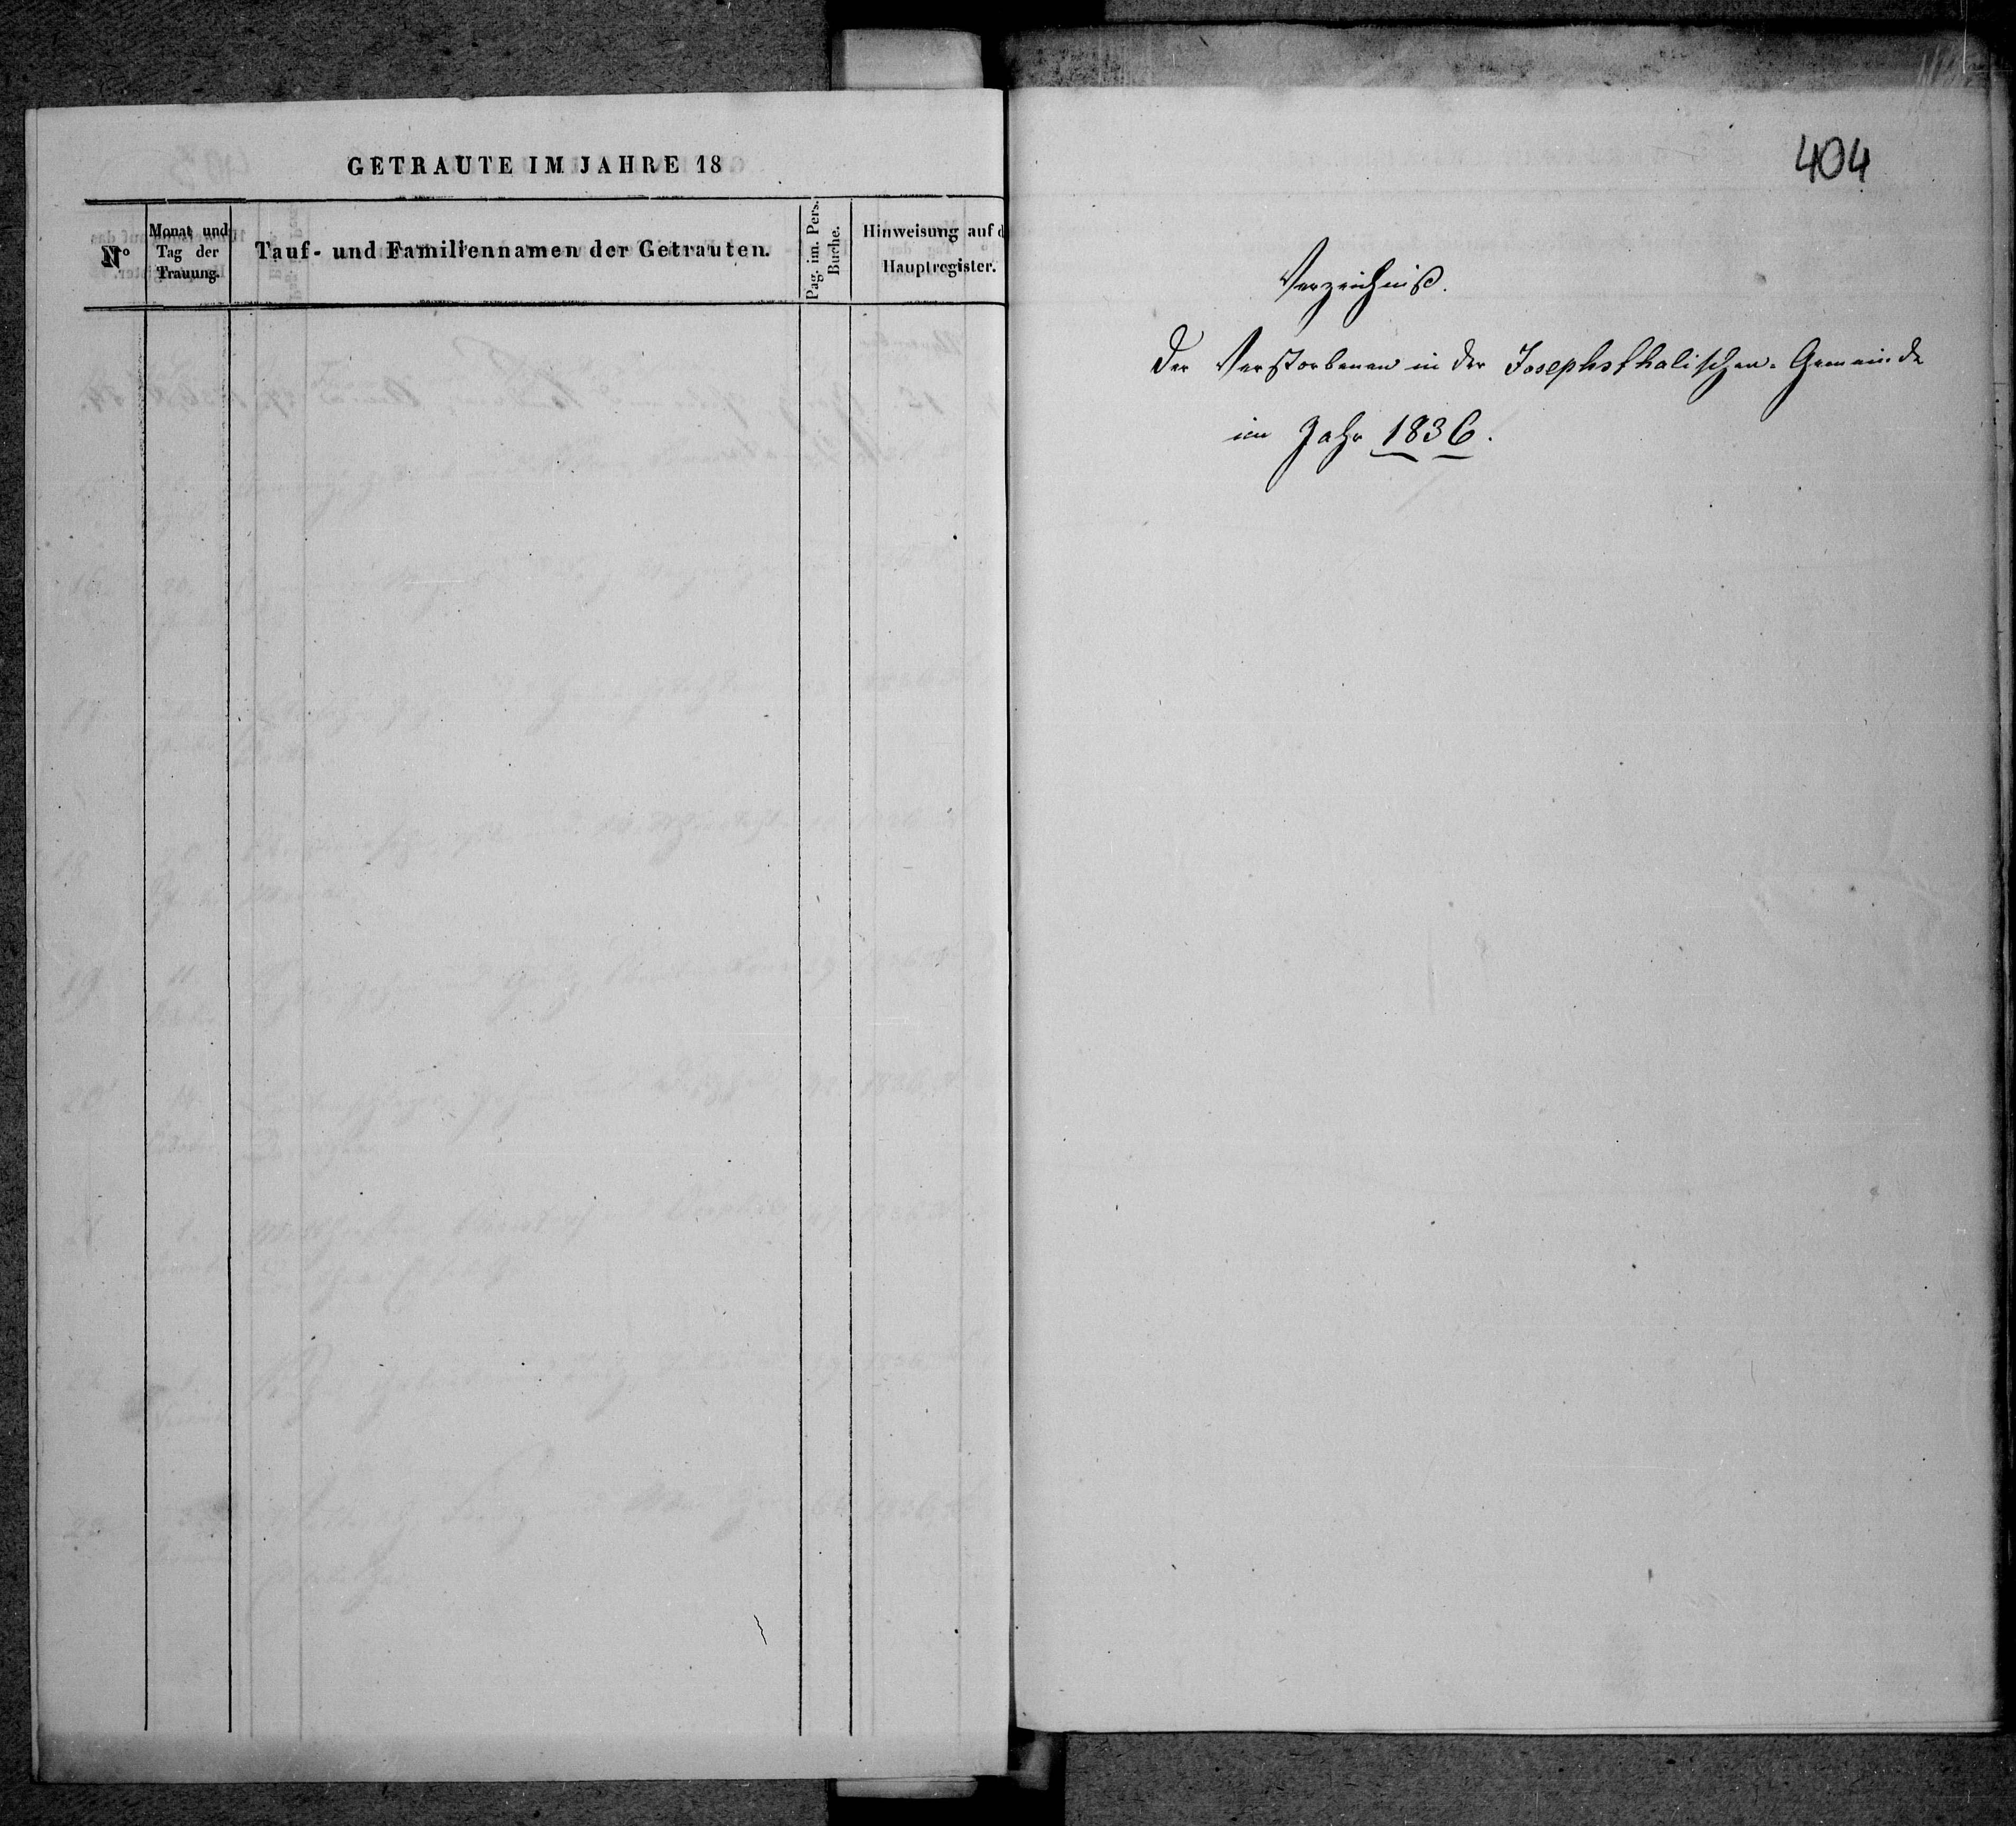 GETRAUTE IM JAHRE 18
No
Monat und
Tag der
Trauung.
Tauf- und Familiennamen der Getrauten.
Pag. im. Pers.
Buche.
Hinweisung auf d
Hauptregister.
404
Verzeichniß.
Der Verstorbenen in der Josephsthalischen-Gemeinde
im Jahr 1836.